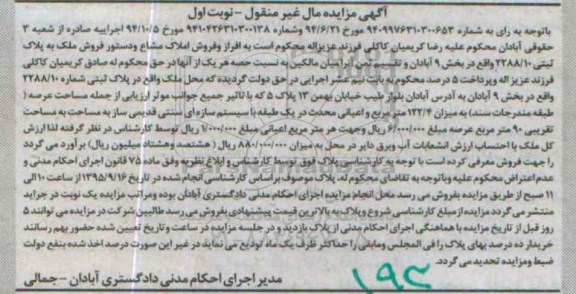 آگهی مزایده مال غیر منقول - نوبت اول
باتوجه به رای به شماره ۹۴۰۹۹۷۶۳۱۰۳۰۰۶۵۳ مورخ ۹۴/۶/۲۱ وشماره ۹۴۱۰۴۲۶۳۱۰۳۰۰۱۳۸ مورخ ۹۴/۱۰/۵ اجراییه صادره از شعبه ۳
حقوقی آبادان محکوم علیه رضا کریمیان کاکلی فرزند عزیزاله محکوم است به افراز وفروش املاک مشاع ودستور فروش ملک به پلاک
ثبتی ۲۲۸۸/۱۰ واقع در بخش ۹ آبادان و تقسیم ثمن آن میان مالکین به نسبت حصه هر یک از آنها در حق محکوم له صادق کریمیان کاکلی
فرزند عزیز اله وپرداخت ۵ درصد محکوم به بابت نیم عشر اجرایی در حق دولت گردیده که محل ملک واقع در پلاک ثبتی شماره ۲۲۸۸/۱۰
واقع در بخش ۹ آبادان به آدرس آبادان بلوار طیب خیابان بهمن ۱۳ پلاک ۵ که با تاثیر جمیع جوانب موثر ارزیابی از جمله مساحت عرصه (
طبقه مندرجات سند) به میزان ۱۲۲/۴ متر مربع و اعیانی محدث در یک طبقه با سیستم سازه ای سنتی قدیمی ساز به مساحت به مساحت
تقریبی ۹۰ متر مربع عرصه مبلغ ۶/۰۰۰/۰۰۰ ریال وجهت هر متر مربع اعیانی مبلغ ۱/۰۰۰/۰۰۰ ریال توسط کارشناس در نظر گرفته لذا ارزش
کل ملک با احتساب ارزش انشعابات آب وبرق دایر در محل به میزان ۸۸۰/۰۰۰/۰۰۰ ریال ( هشتصد وهشتاد میلیون ریال) بر آورد می گردد
را جهت فروش معرفی کرده است با توجه به کارشناسی پلاک فوق توسط کارشناس و ابلاغ نظریه وفق ماده ۷۵ قانون اجرای احکام مدنی و
عدم اعتراض محکوم علیه وباتوجه به تقاضای محکوم له، پلاک موصوف براساس کارشناسی انجام شده در تاریخ ۱۳۹۵/۹/۱۶ از ساعت ۱۰ الی
۱۱ صبح از طریق مزایده بفروش می رسد محل انجام مزایده اجرای احکام مدنی دادگستری آبادان بوده ومراتب مزایده یک نوبت در جراید
منتشر می گردد مزایده از مبلغ کارشناسی شروع وپلاک به بالاترین قیمت پیشنهادی بفروش می رسد طالبین شرکت در مزایده می توانند ۵
روز قبل از تاریخ مزایده با هماهنگی اجرای احکام مدنی از پلاک بازدید و در جلسه مزایده در ساعت وتاریخ تعیین شده حضور بهم رسانند
خریدار ده درصد بهای پلاک را فی المجلس ومابقی را حداکثر ظرف یک ماه تودیع می نماید در غیر این صورت درصد اخذ شده بنفع دولت
ضبط ومزایده تجدید می گردد.
مدیر اجرای احکام مدنی دادگستری آبادان - جمالی
۱۹۳